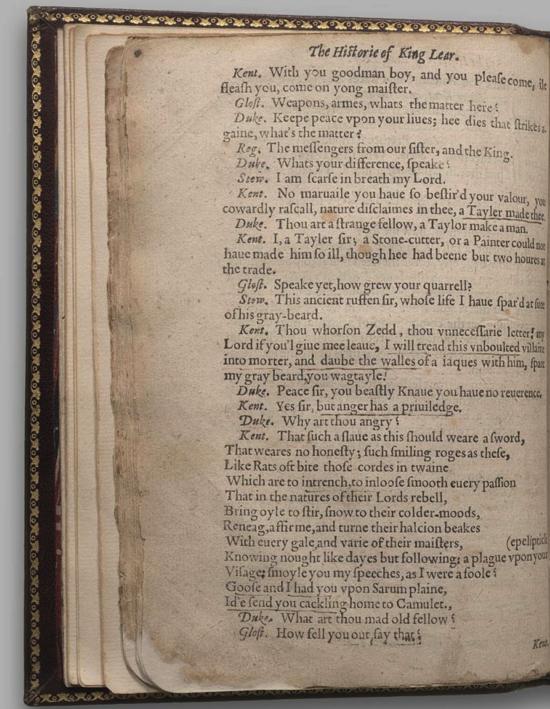 The Historie of King Lear.
Kent. With you goodman boy, and you please come, ile
fleash you, come on yong maister.
Glost. Weapons, armes, whats the matter here?
Duke. Keepe peace vpon your liues; hee dies that strikes a-
gaine, what's the matter?
Reg. The messengers from our sister, and the King.
Duke. Whats your difference, speake?
Stew. I am scarse in breath my Lord.
Kent. No maruaile you haue so bestir'd your valour, you
cowardly rascall, nature disclaimes in thee, a Tayler made thee.
Duke. Thou art a strange fellow, a Taylor make a man.
Kent. I, a Tayler sir; a Stone-cutter, or a Painter could not
haue made him so ill, though hee had beene but two houres at
the trade.
Glost. Speake yet, how grew your quarrell?
Stew. This ancient ruffen sir, whose life I haue spar'd at sute
of his gray-beard.
Kent. Thou whorson Zedd, thou vnnecessarie letter! my
Lord if you'l giue mee leaue, I will tread this vnboulted villaine
into morter, and daube the walles of a iaques with him, spare
my gray beard, you wagtayle!
Duke. Peace sir, you beastly Knaue you haue no reuerence.
Kent. Yes sir, but anger has a priuiledge.
Duke. Why art thou angry?
Kent. That such a slaue as this should weare a sword,
That weares no honesty; such smiling roges as these,
Like Rats oft bite those cordes in twaine
Which are to intrench, to inloose smooth euery passion
That in the natures of their Lords rebell,
Bring oyle to stir, snow to their colder-moods,
Reneag, affirme, and turne their halcion beakes
With euery gale, and varie of their maisters, (epeliptick
Knowing nought like dayes but following; a plague vpon your
Visage; smoyle you my speeches, as I were a foole?
Goose and I had you vpon Sarum plaine,
Id'e send you cackling home to Camulet.,
Duke. What art thou mad old fellow?
Glost. How fell you out, say that?
Kent.